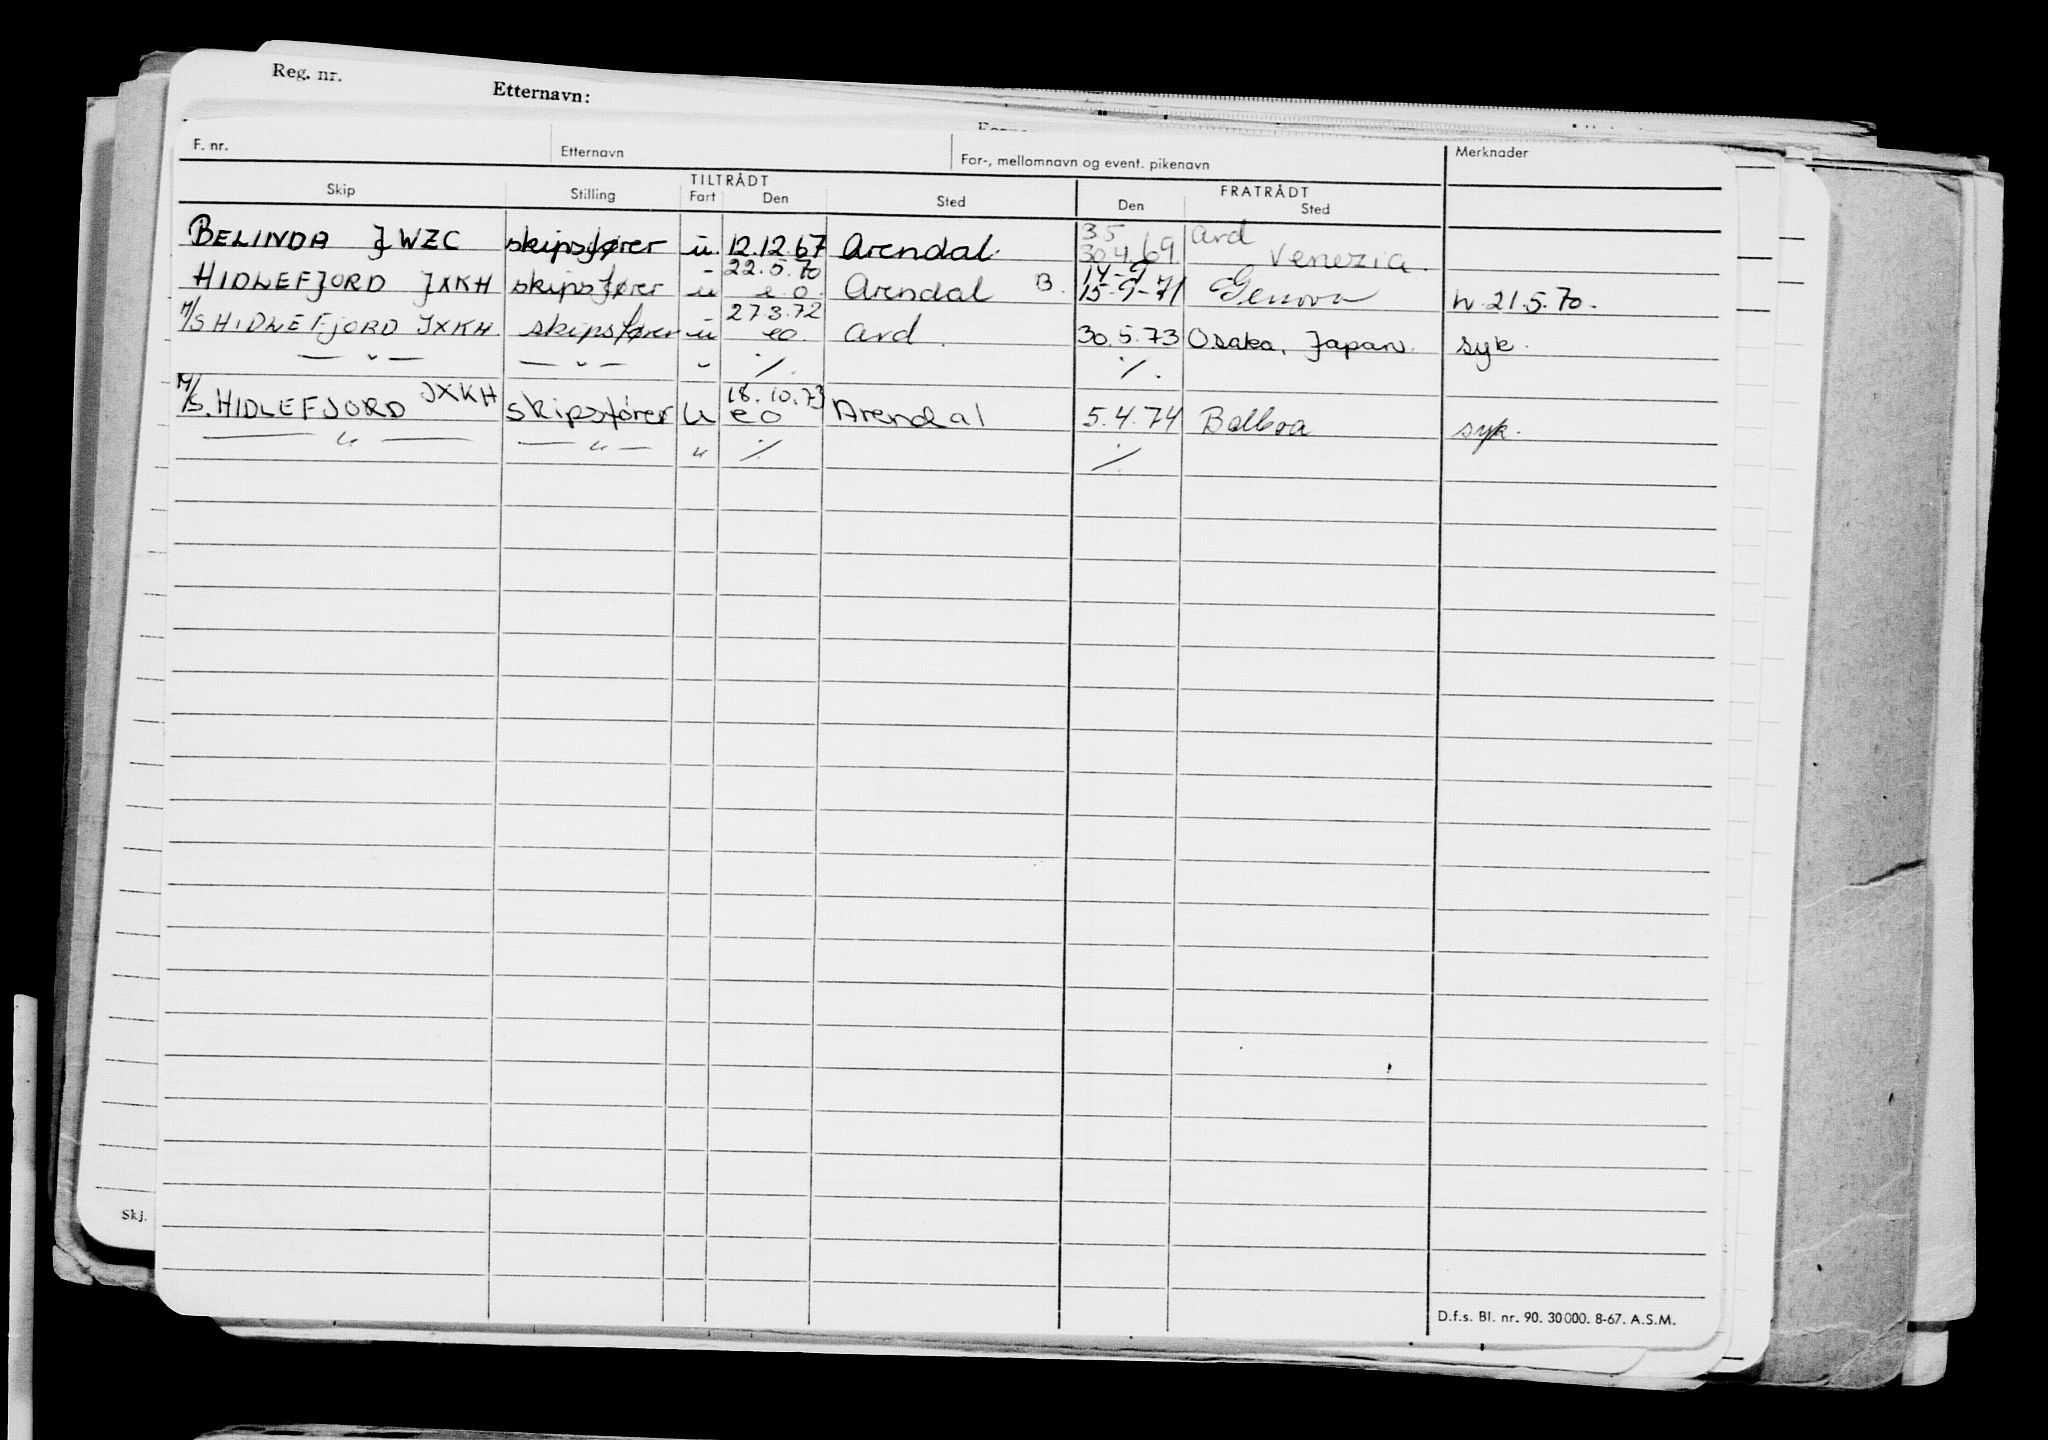 Reg. nr.
Etternavn:
F. nr. Etternavn For-, mellomnavn og event. pikenavn Merknader
TILTRÅDT FRATRÅDT
Skip Stilling Fart Den Sted Den Sted
3.5 Ard
BELINDA JWZC skipsfører u. 12.12.67 Arendal. 30.4.69. Venezia.
22.5.70 14-9
HIDLEFJORD JXKH skipsfører u e.o. Arendal B. 15-9-71 Genova h. 21.5.70.
27.3.72
M/S HIDLEFJORD JXKH skipsfører u eo. Ard. 30.5.73 Osaka, Japan. syk.
— " — — " — " ·/. ·/.
JXKH 18.10.73
M/S. HIDLEFJORD skipsfører u eo Arendal 5.4.74 Balboa syk.
— " — — " — " ·/. ·/.
Skj.
D.f.s. Bl. nr. 90. 30000. 8-67. A.S.M.